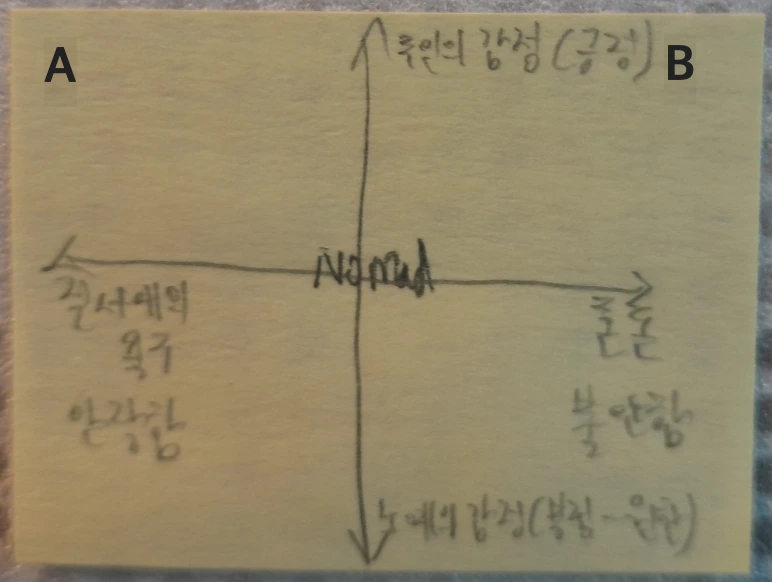 A
주인의 감정 (긍정)
B
Nomad
질서에의
욕구
안정함
혼돈
불안함
노예의 감정 (부정-원한)